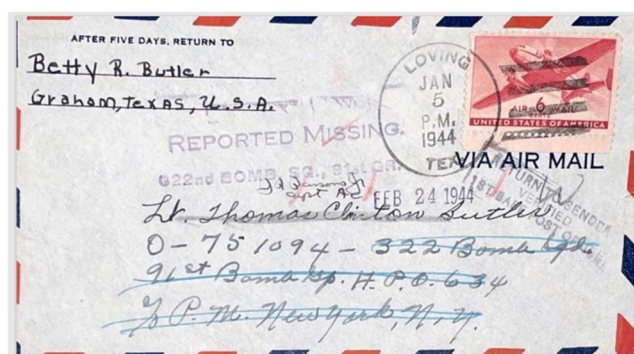 AFTER FIVE DAYS, RETURN TO
Betty R. Butler
Graham, Texas, U.S.A.
LOVING
JAN
5
P.M.
1944
TEX
AIR 6 MAIL
CENTS
UNITED STATES OF AMERICA
VIA AIR MAIL
REPORTED MISSING.
322nd BOMB. SQ., 91st GR.
FEB 24 1944
RETURN TO SENDER
VERIFIED
1ST BASE POST OFFICE
Lt. Thomas Clinton Butler
O-751094 - 322 Bomb Sqd.
91st Bomb Gp. A.P.O. 634
% P.M. New York, N.Y.